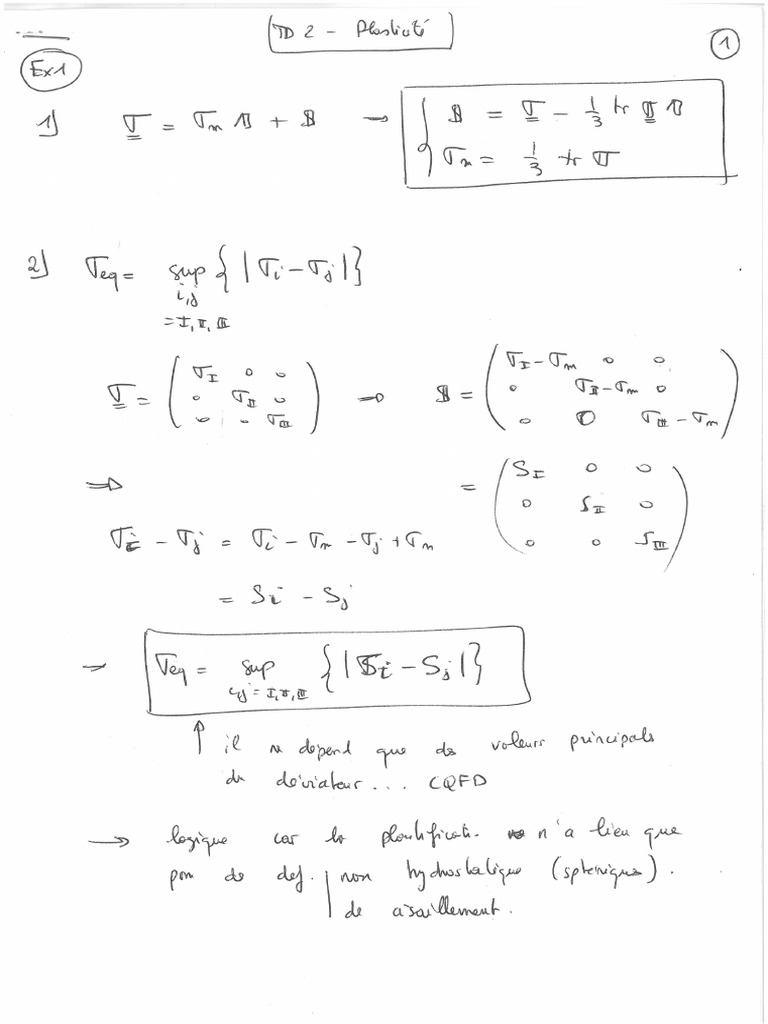 TD 2 - Plasticité
1
Ex1
1) σ = σm 1 + S → { S = σ - 1/3 tr σ 1
σm = 1/3 tr σ
2) σeq = sup { |σi - σj| }
i,j
= I, II, III
σ = ( σI 0 0 ; 0 σII 0 ; 0 0 σIII ) → S = ( σI - σm 0 0 ; 0 σII - σm 0 ; 0 0 σIII - σm )
⇒ = ( SI 0 0 ; 0 SII 0 ; 0 0 SIII )
σi - σj = σi - σm - σj + σm
= Si - Sj
→ σeq = sup { |Si - Sj| }
i,j = I, II, III
↑ il ne dépend que des valeurs principals
du déviateur... CQFD
→ logique car la plastificat. n'a lieu que
pour de def. | non hydrostatique (spheriques).
| de cisaillement.